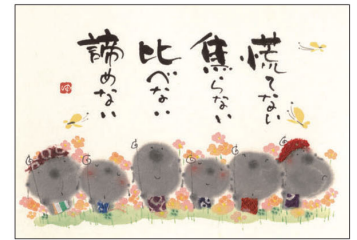 慌てない
焦らない
比べない
諦めない